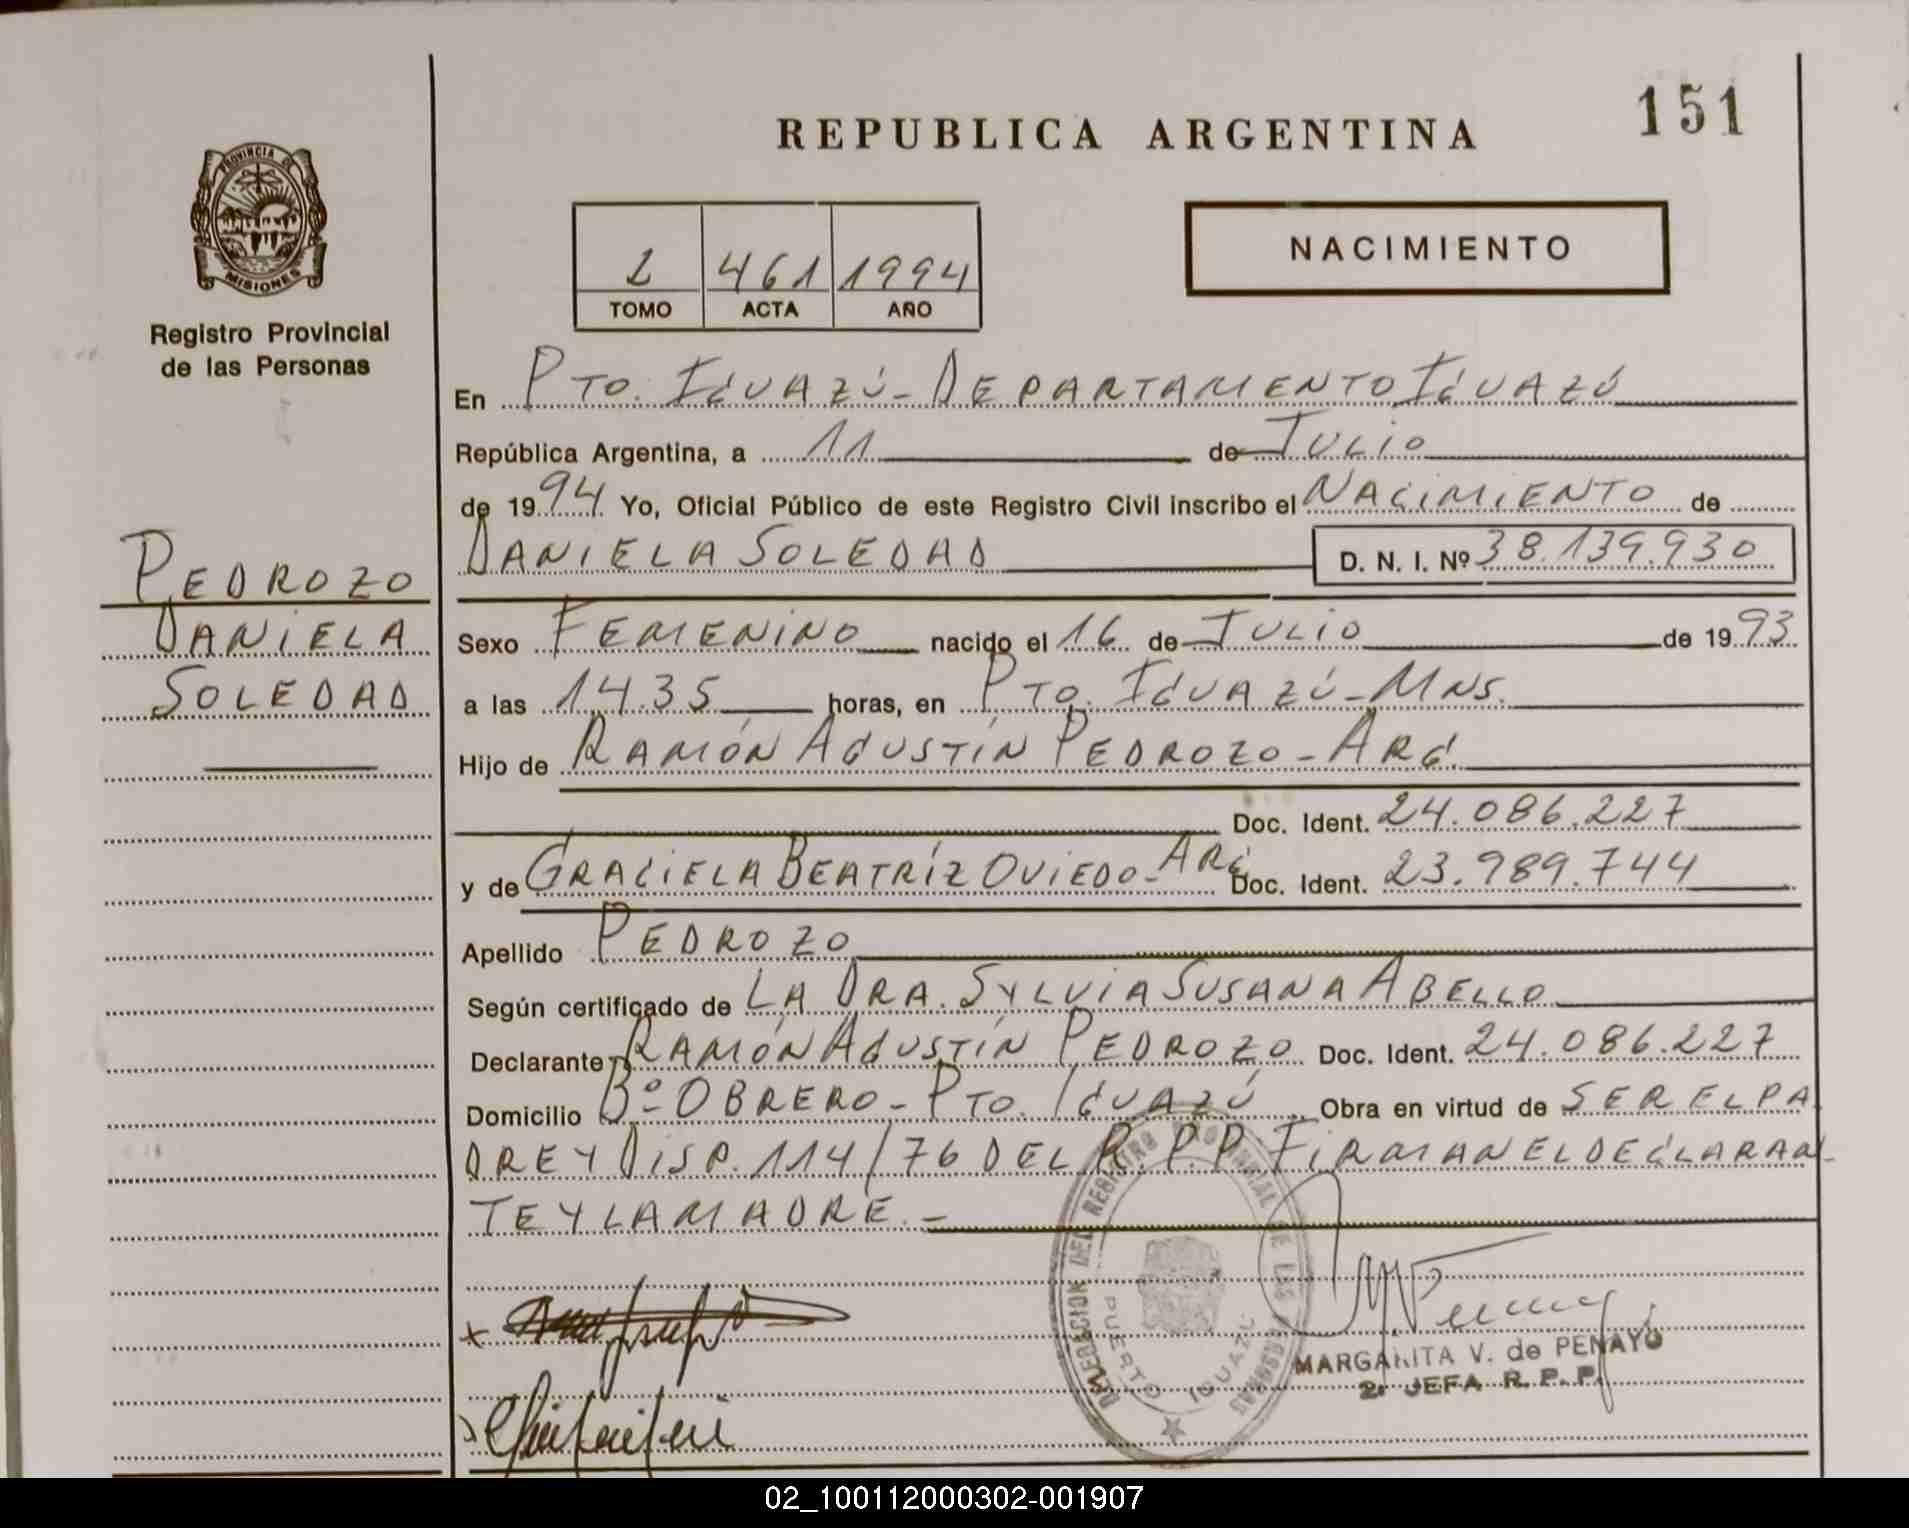 151
REPUBLICA ARGENTINA
PROVINCIA DE
MISIONES
Registro Provincial
de las Personas
NACIMIENTO
2 461 1994
TOMO ACTA AÑO
En PTO. IGUAZÚ - DEPARTAMENTO IGUAZÚ
República Argentina, a 11 de JULIO
de 1994 Yo, Oficial Público de este Registro Civil inscribo el NACIMIENTO de
DANIELA SOLEDAD D. N. I. Nº 38.139.930
PEDROZO
DANIELA
SOLEDAD
Sexo FEMENINO nacido el 16 de JULIO de 1993
a las 14.35 horas, en PTO. IGUAZÚ - MNS.
Hijo de RAMÓN AGUSTÍN PEDROZO - ARG.
Doc. Ident. 24.086.227
y de GRACIELA BEATRÍZ OVIEDO - ARG Doc. Ident. 23.989.744
Apellido PEDROZO
Según certificado de LA DRA. SYLVIA SUSANA ABELLO
Declarante RAMÓN AGUSTÍN PEDROZO Doc. Ident. 24.086.227
Domicilio Bº OBRERO - PTO. IGUAZÚ Obra en virtud de SER EL PA
DRE Y DISP. 114/76 DEL R.P.P. FIRMAN EL DECLARAN-
TE Y LA MADRE. -
DIRECCION DEL REGISTRO PROVINCIAL DE LAS PERSONAS
PUERTO IGUAZU
MARGARITA V. de PENAYO
2º JEFA R. P. P.
02_100112000302-001907